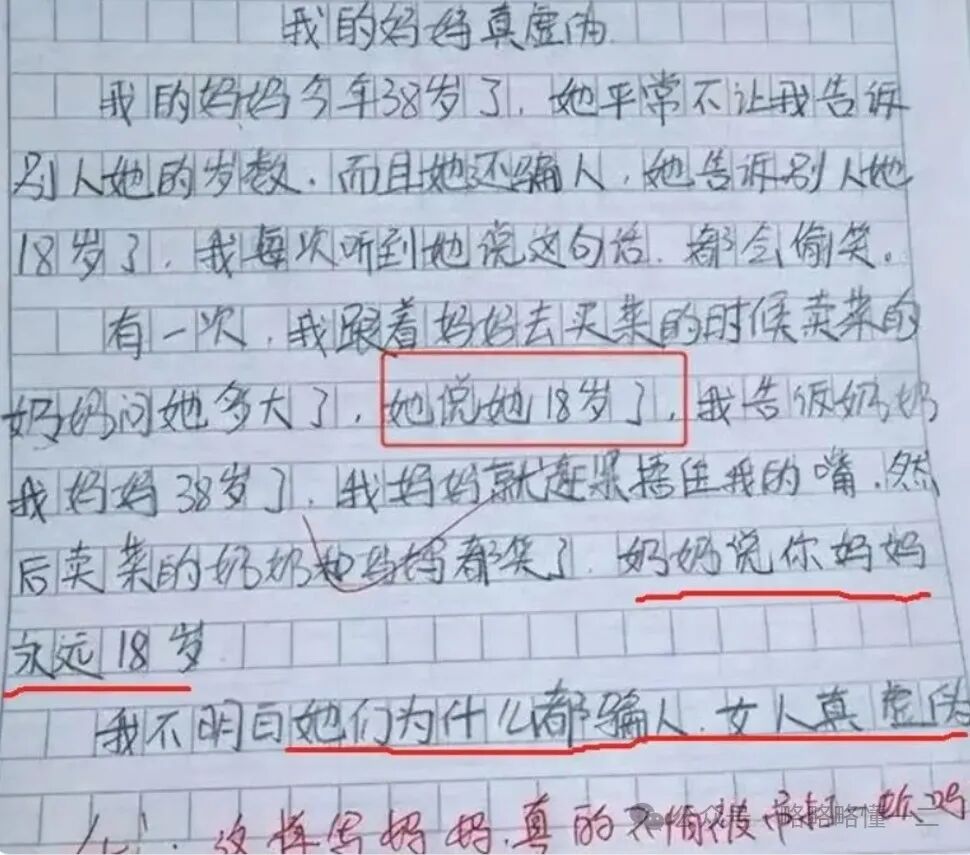 我的妈妈真虚伪
我的妈妈今年38岁了，她平常不让我告诉
别人她的岁数，而且她还骗人，她告诉别人她
18岁了，我每次听到她说这句话，都会偷笑。
有一次，我跟着妈妈去买菜的时候卖菜的
奶奶问她多大了，她说她18岁了，我告诉奶奶
我妈妈38岁了，我妈妈就赶紧捂住我的嘴，然
后卖菜的奶奶和妈妈都笑了，奶奶说你妈妈
永远18岁
我不明白她们为什么都骗人，女人真虚伪
这样写妈妈，真的不怕被
公众号 略略略懂